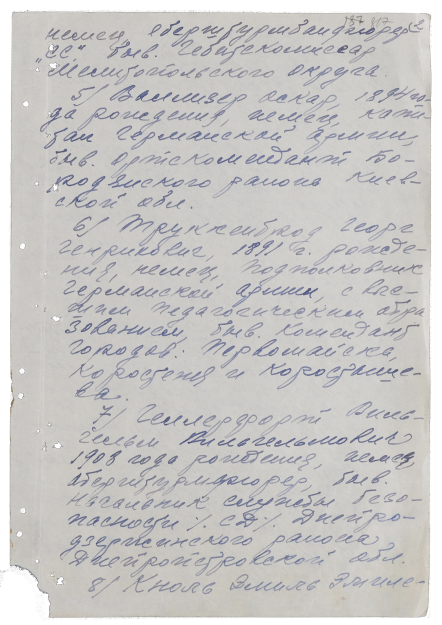 немец, обершурмбанфюрер
"СС" быв. Гебитскомиссар
Мелитопольского округа.
5/ Валлизер Оскар, 1894 го-
да рождения, немец, капи-
тан Германской армии,
быв. ортскомендант Бо-
родянского района Киев-
ской обл.
6/ Труккенброд Георг
Генрихович, 1891 г. рожде-
ния, немец, подполковник
Германской армии, с выс-
шим педагогическим обра
зованием, быв. комендант
городов: Первомайска,
Коростень и Коростыше-
ва.
7/ Геллерфорт Виль-
гельм Вильгельмович
1908 года рождения, немец,
обершурмфюрер, быв.
начальник службы безо-
пасности /СД/ Днепро-
дзержинского района
Днепропетровской обл.
8/ Кноль Эмиль Эмиле-